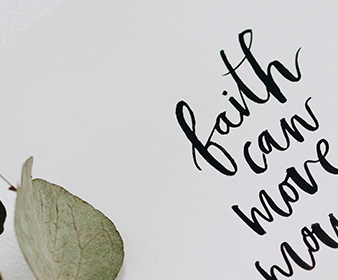 faith
can
move
mou